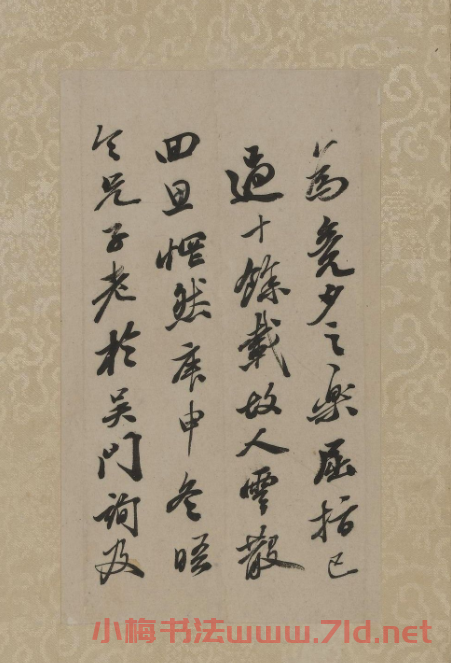 以為竟夕之樂屈指已
過十餘載故人雲散
回思惘然庚申冬晤
令兄子老於吳門詢及
小梅书法www.7ld.net